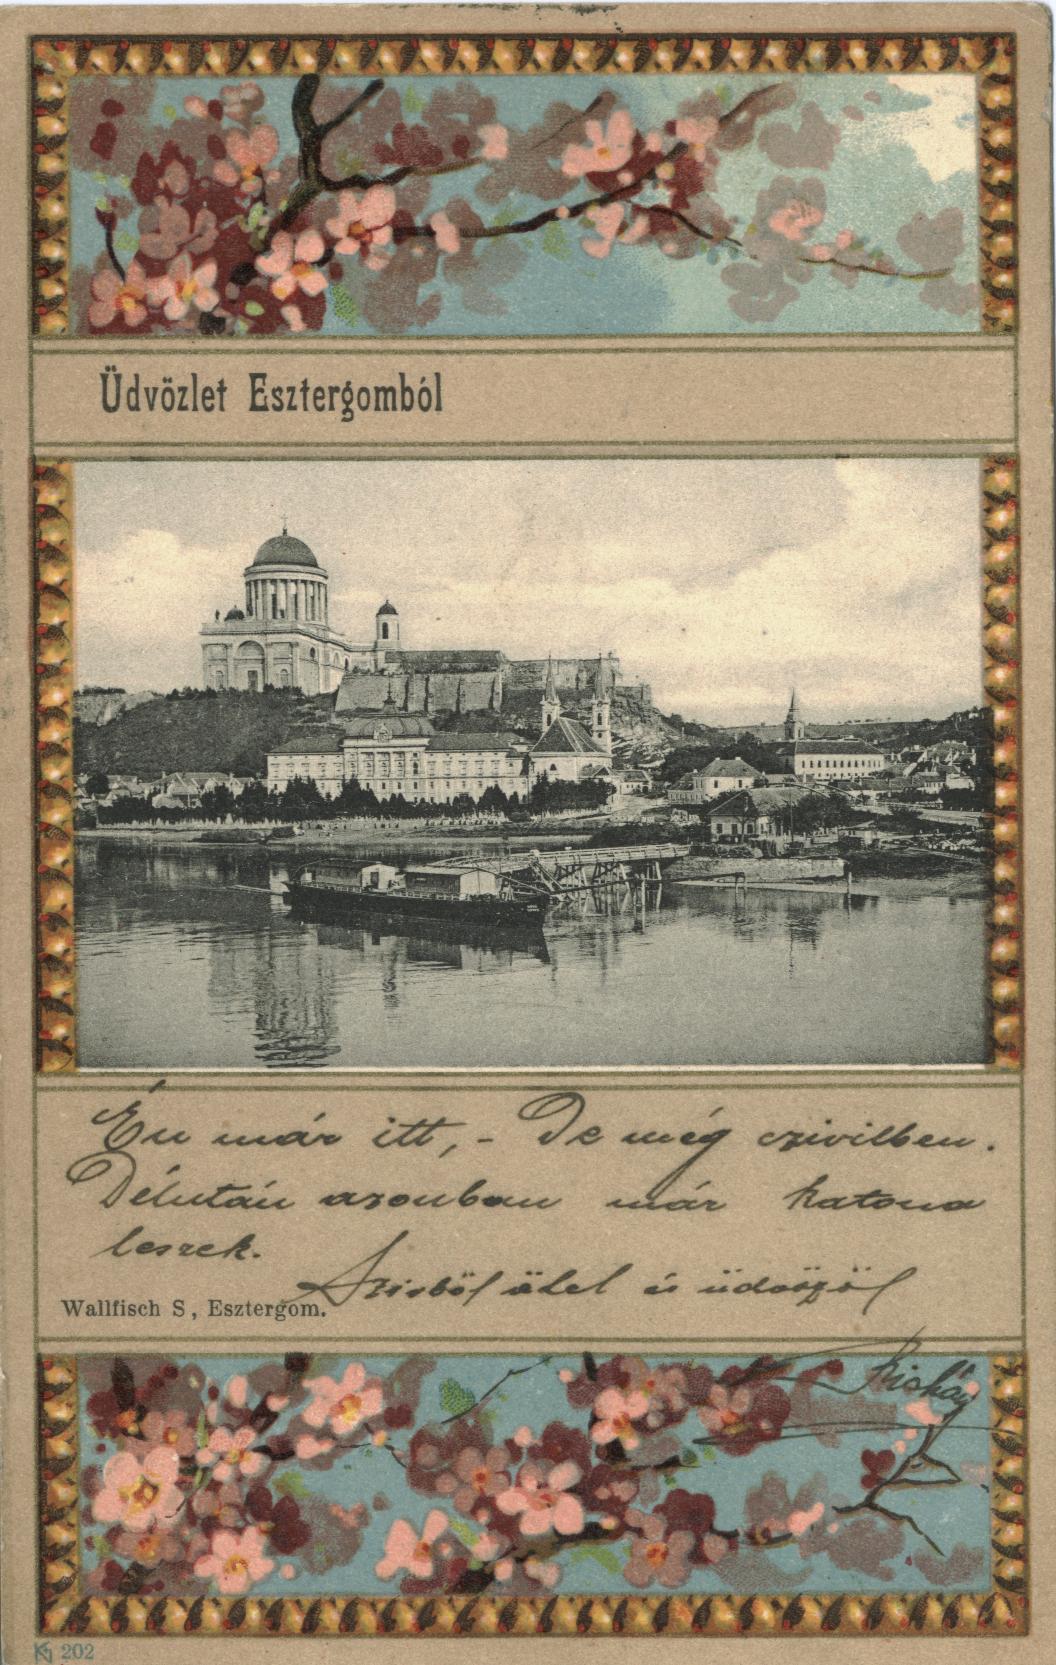 Üdvözlet Esztergomból
Én már itt, - De még czivilben.
Délután azonban már katona
leszek.
Szivból ölel és üdvözöl
Wallfisch S, Esztergom.
202